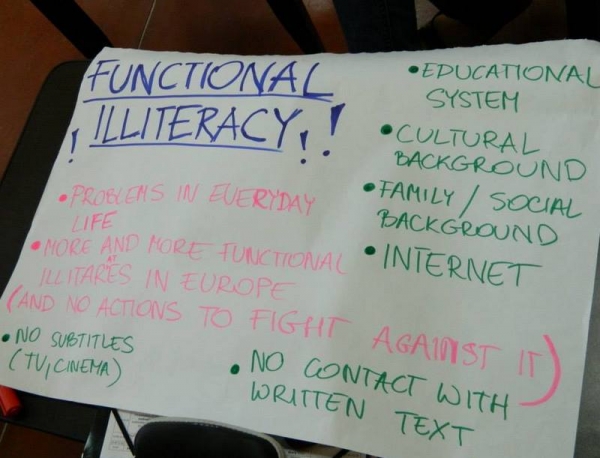 FUNCTIONAL
! ILLITERACY!!
• PROBLEMS IN EVERYDAY
LIFE
• MORE AND MORE FUNCTIONAL
ILLITARES IN EUROPE
AT
(AND NO ACTIONS TO FIGHT AGAINST IT)
• NO SUBTITLES
(TV, CINEMA)
• EDUCATIONAL
SYSTEM
• CULTURAL
BACKGROUND
• FAMILY / SOCIAL
BACKGROUND
• INTERNET
• NO CONTACT WITH
WRITTEN TEXT